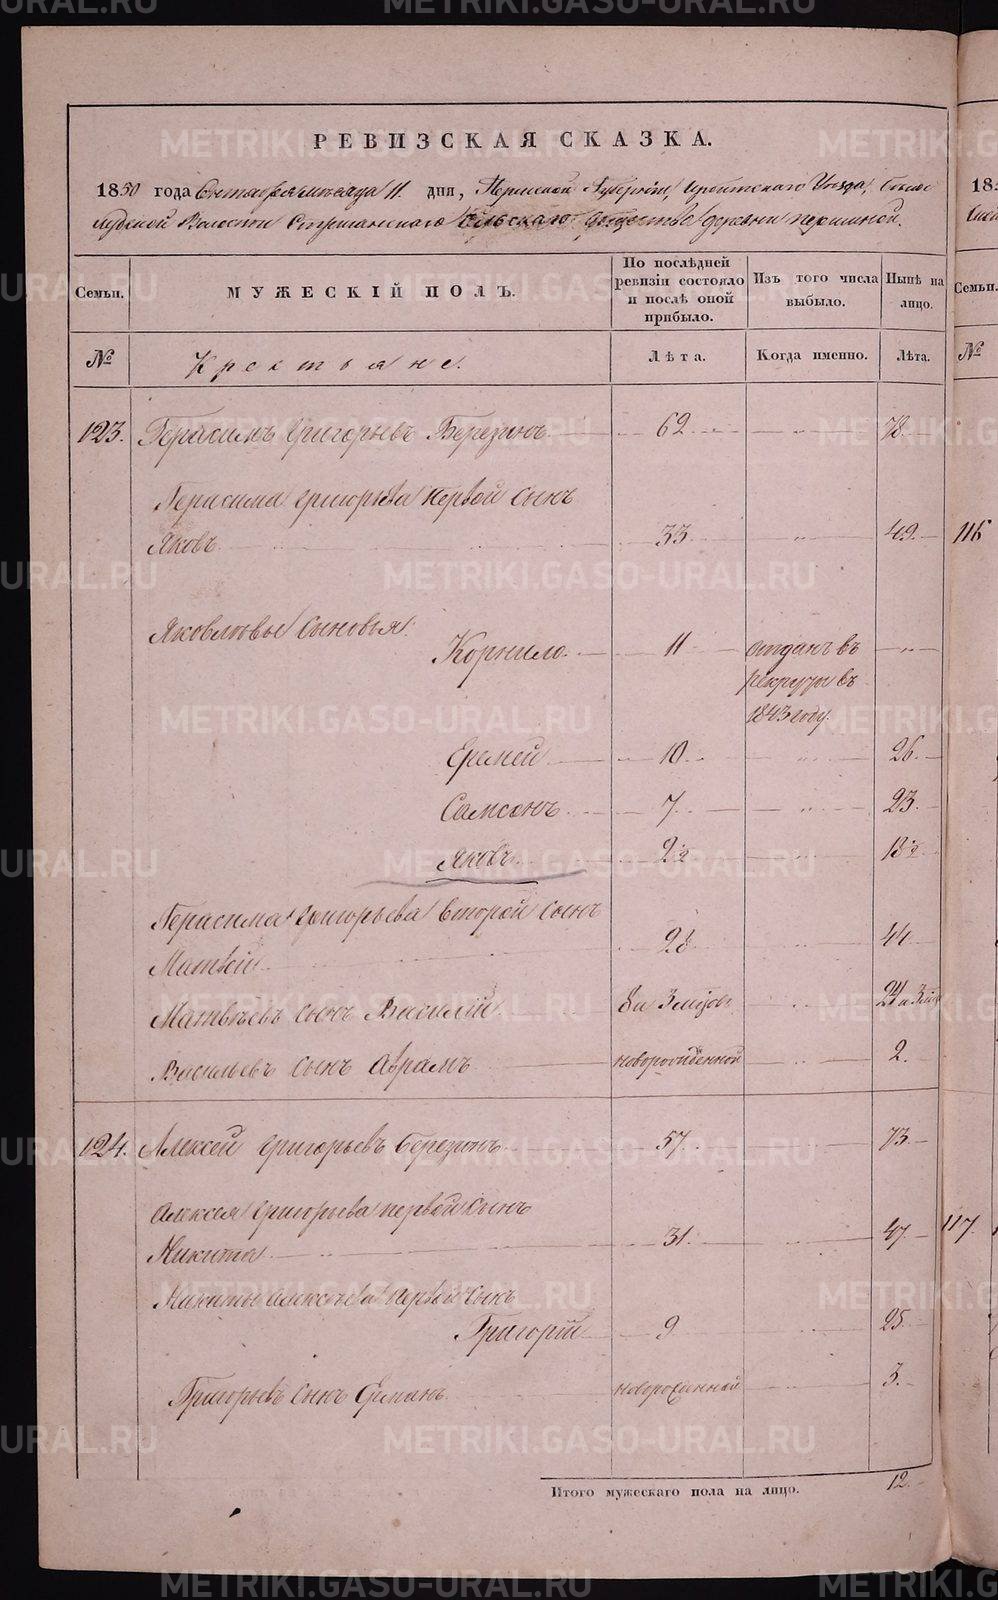 РЕВИЗСКАЯ СКАЗКА.
1850 года Октября месяца 11 дня, Пермской Губернии, Ирбитского Уезда,
Волости Стриганского Сельского общества деревни
Семьи. МУЖЕСКІЙ ПОЛЪ. По послѣдней ревизіи состояло и послѣ оной прибыло. Изъ того числа выбыло. Нынѣ на лицо.
№ Крестьяне. Лѣта. Когда именно. Лѣта.
123. Герасимъ Григорьевъ Березинъ 62 78
Герасима Григорьева первой сынъ
Яковъ 33 49
Яковлевы сыновья:
Корнило 11 отданъ въ
рекруты въ
1843 году.
Еремей 10 26
Самсонъ 7 23
Яковъ 2½ 18½
Герасима Григорьева второй сынъ
Матвей 28 44
Матвѣевъ сынъ Василій 8 и 3 24 и 3
Васильевъ сынъ Абрамъ новорожденной 2
124. Алексей Григорьевъ Березинъ 57 73
Алексея Григорьева первой сынъ
Никита 31 47
Никиты Алексеева первой сынъ
Григорій 9 25
Григорьевъ сынъ новорожденной 3
Итого мужескаго пола на лицо. 12
185
Семьи.
№
116
117
METRIKI.GASO-URAL.RU